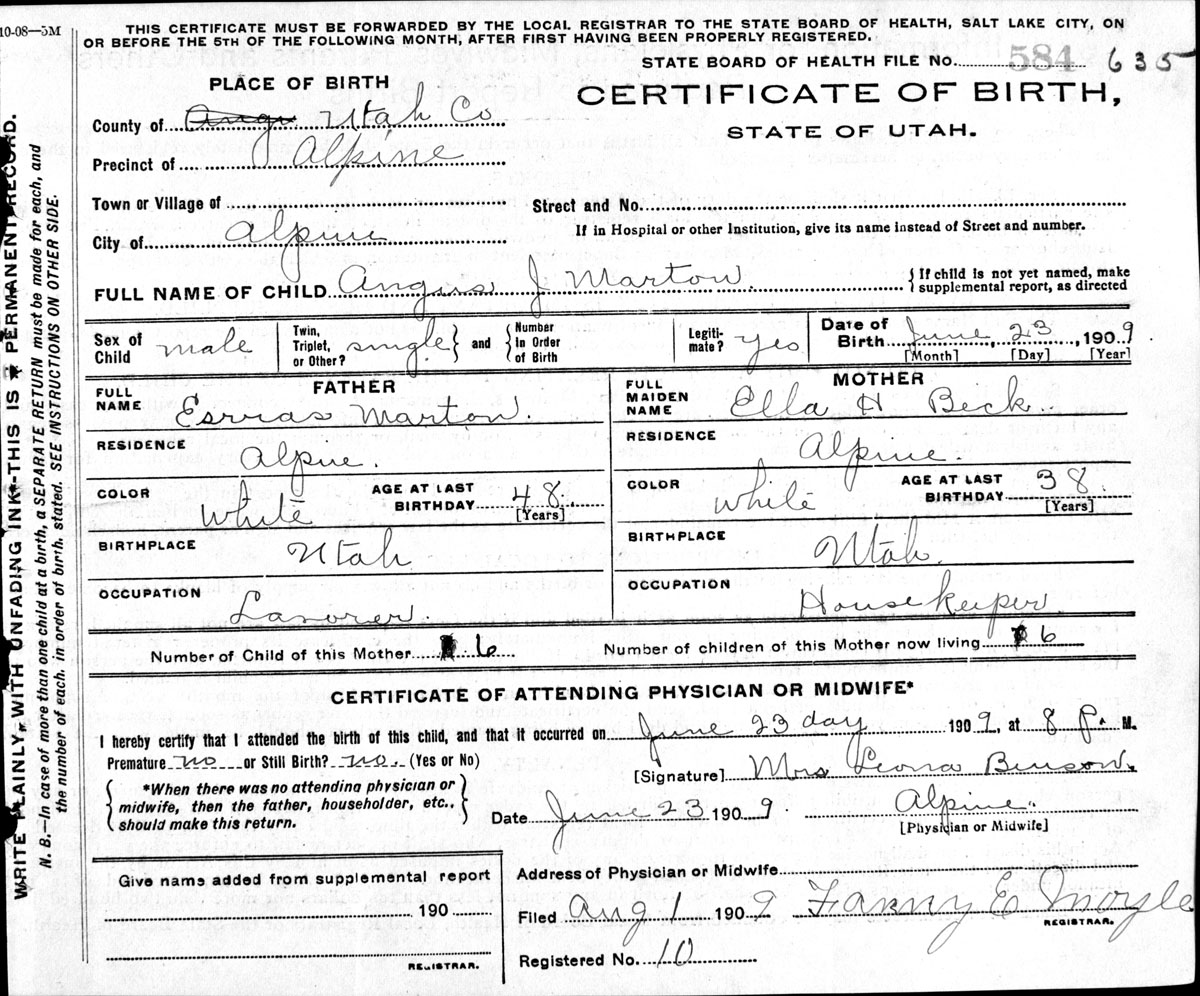 10-08—5M
THIS CERTIFICATE MUST BE FORWARDED BY THE LOCAL REGISTRAR TO THE STATE BOARD OF HEALTH, SALT LAKE CITY, ON
OR BEFORE THE 5TH OF THE FOLLOWING MONTH, AFTER FIRST HAVING BEEN PROPERLY REGISTERED.
STATE BOARD OF HEALTH FILE No. 584 635
PLACE OF BIRTH
CERTIFICATE OF BIRTH,
STATE OF UTAH.
County of Utah Co
Precinct of Alpine
Town or Village of
Street and No.
City of Alpine
If in Hospital or other Institution, give its name instead of Street and number.
FULL NAME OF CHILD Angus J Marton
{ If child is not yet named, make
supplemental report, as directed
Sex of Child male
Twin, Triplet, or Other? single } and { Number In Order of Birth
Legiti-mate? yes
Date of Birth June, 23, 1909
[Month] [Day] [Year]
FATHER
FULL NAME Esrias Marton.
RESIDENCE Alpine.
COLOR White
AGE AT LAST BIRTHDAY 48 [Years]
BIRTHPLACE Utah
OCCUPATION Laborer.
MOTHER
FULL MAIDEN NAME Ella H Beck.
RESIDENCE Alpine.
COLOR White
AGE AT LAST BIRTHDAY 38. [Years]
BIRTHPLACE Utah.
OCCUPATION Housekeeper.
Number of Child of this Mother 6
Number of children of this Mother now living 6
CERTIFICATE OF ATTENDING PHYSICIAN OR MIDWIFE*
I hereby certify that I attended the birth of this child, and that it occurred on June 23 day 1909, at 8 P. M.
Premature no or Still Birth? no. (Yes or No)
[Signature] Mrs Leona Benson.
{ *When there was no attending physician or
midwife, then the father, householder, etc.,
should make this return. }
Date June 23 1909
Alpine.
[Physician or Midwife]
Give name added from supplemental report
190
REGISTRAR.
Address of Physician or Midwife
Filed Aug 1 1909 Fanny E Moyle
REGISTRAR.
Registered No. 10
WRITE PLAINLY, WITH UNFADING INK--THIS IS A PERMANENT RECORD.
N. B.—In case of more than one child at a birth, a SEPARATE RETURN must be made for each, and
the number of each. in order of birth. stated. SEE INSTRUCTIONS ON OTHER SIDE.